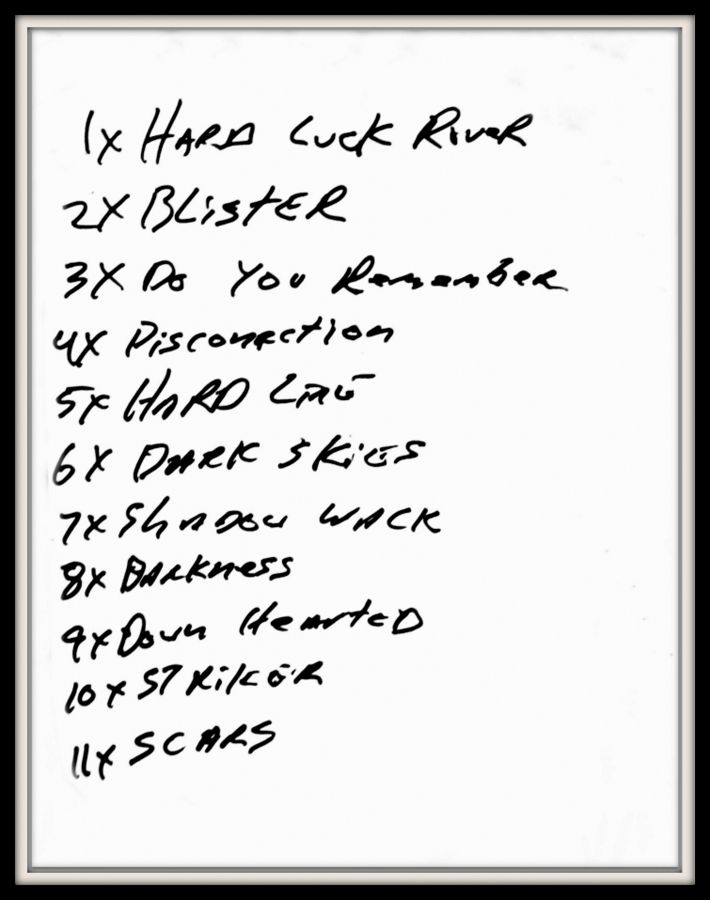 1X HARD LUCK RIVER
2X BLISTER
3X Do You Remember
4X Disconection
5X HARD
6X DARK SKIES
7X SHADOW WACK
8X DARKNESS
9X Down HeartED
10X STRIKER
11X SCARS